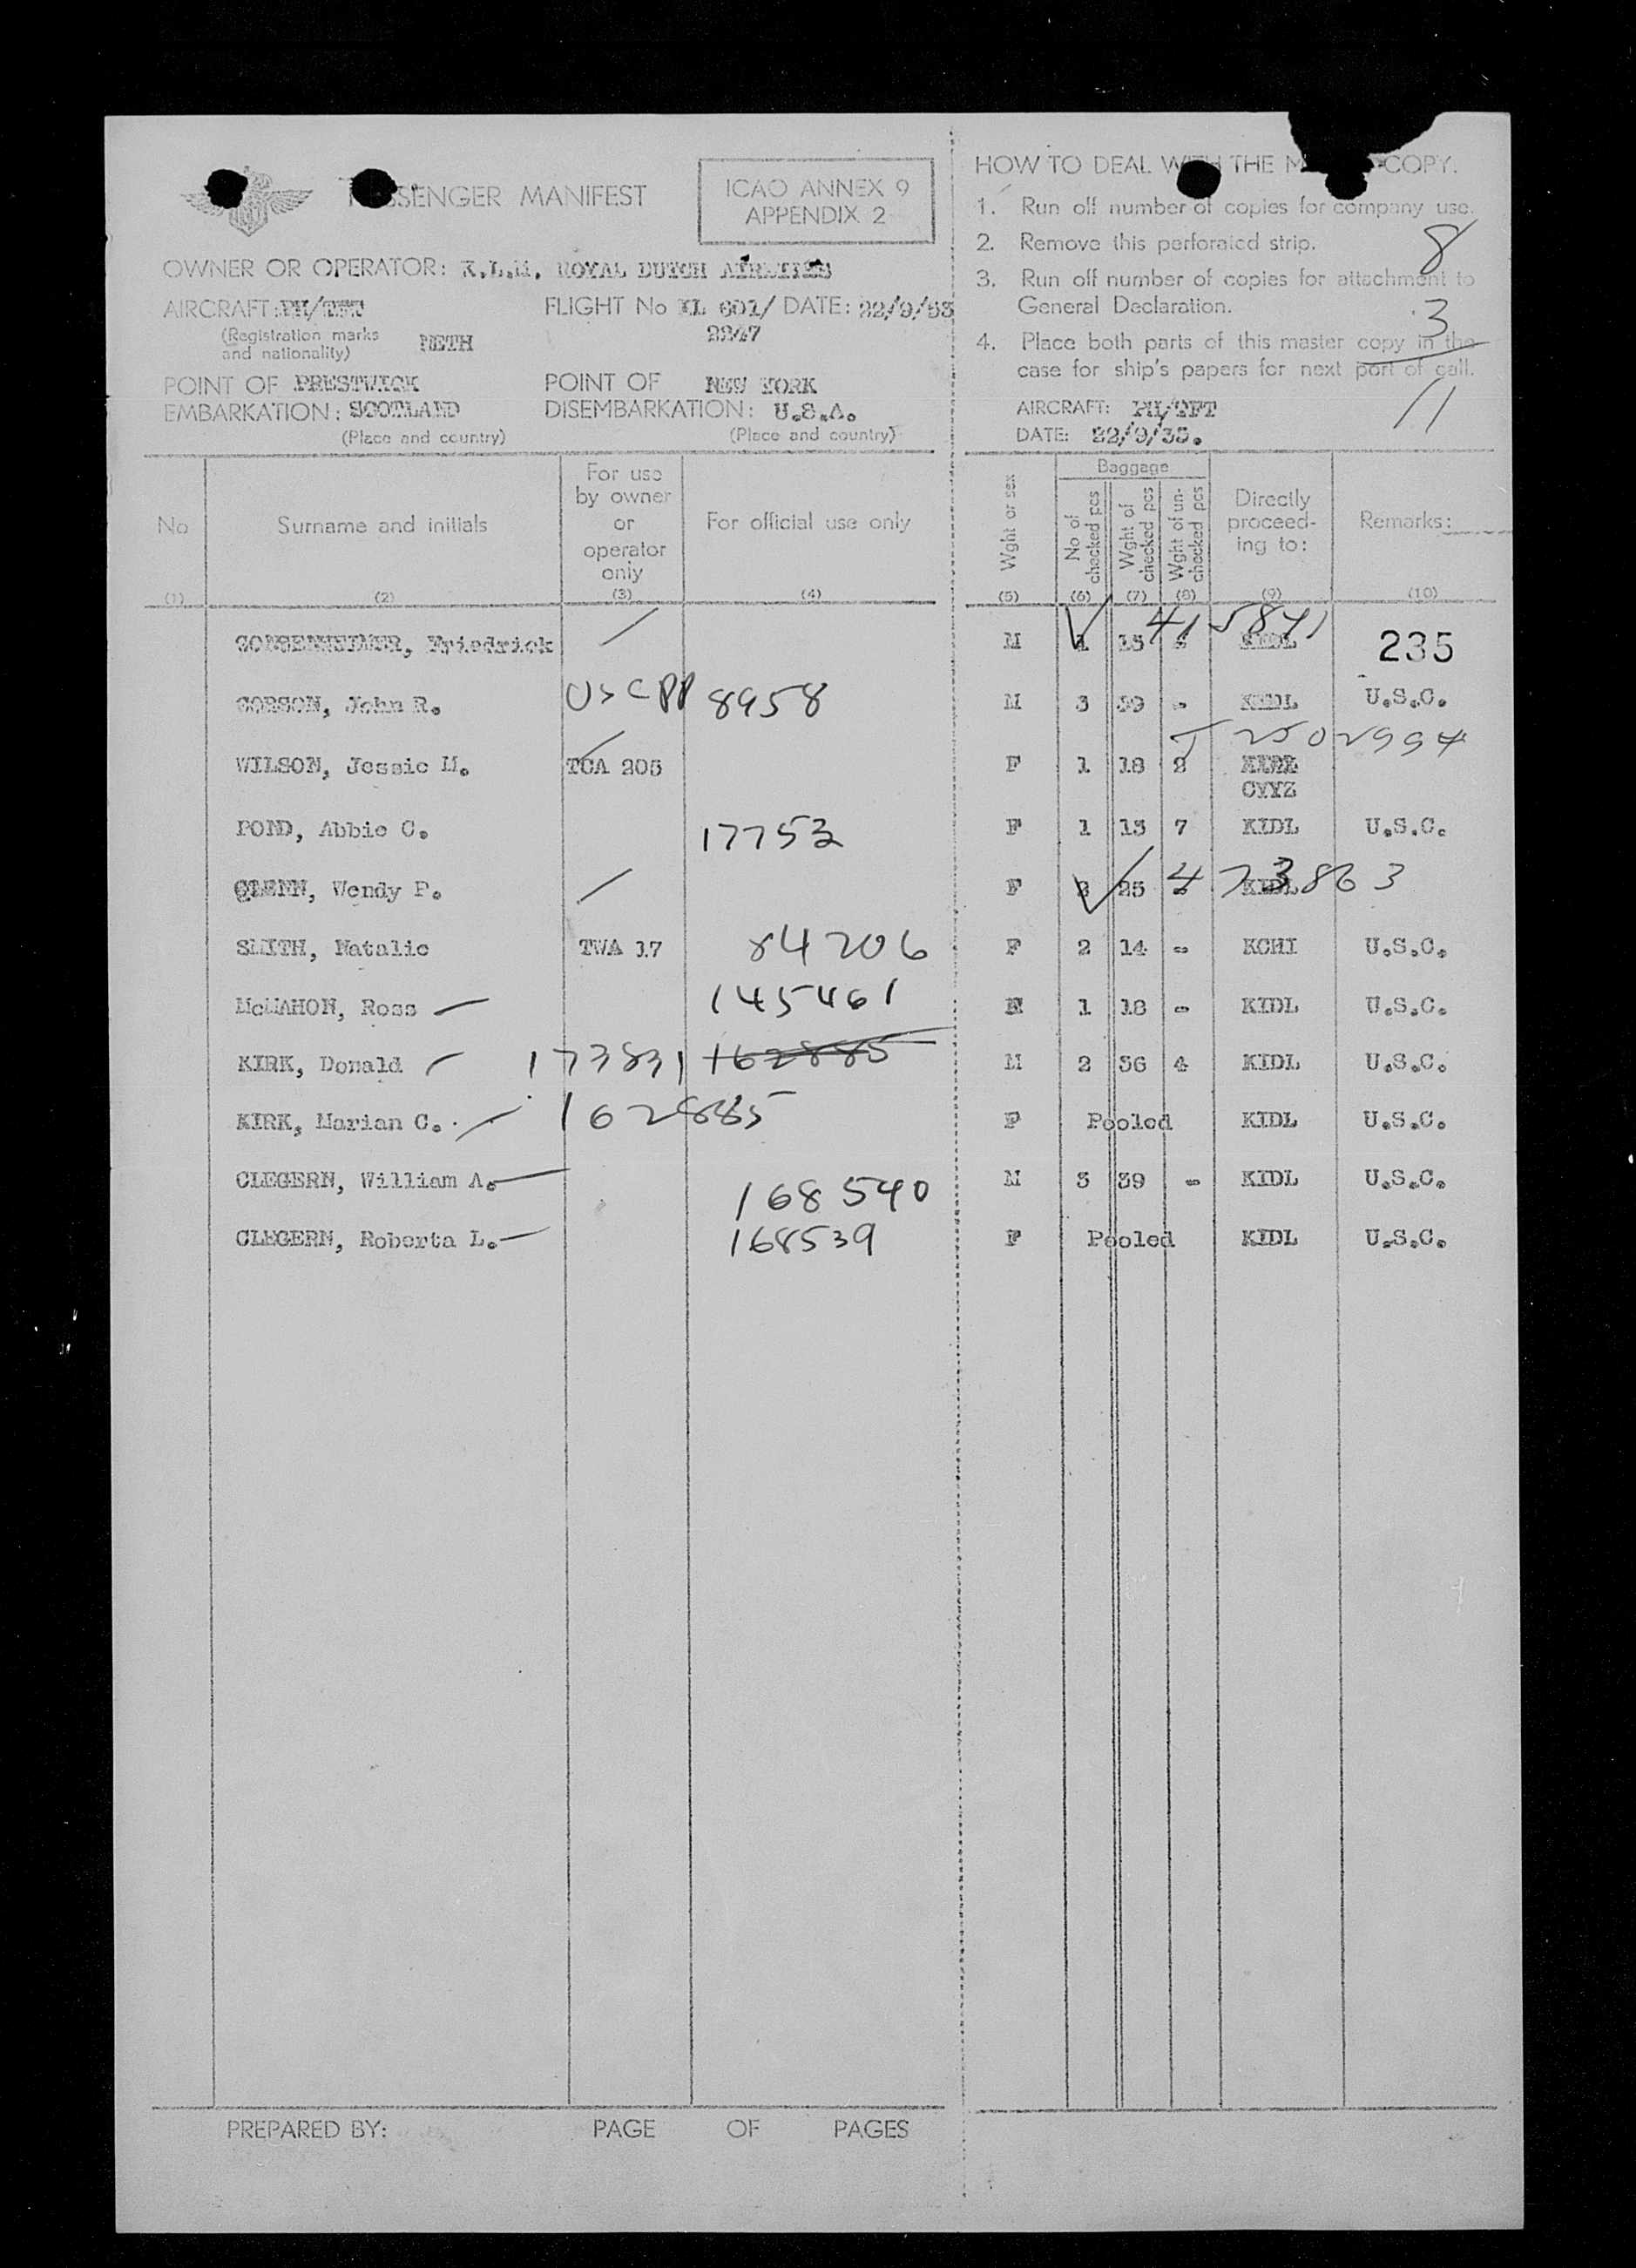 PASSENGER MANIFEST
ICAO ANNEX 9
APPENDIX 2
OWNER OR OPERATOR: K.L.M. ROYAL DUTCH AIRLINES
AIRCRAFT: PH/TFT FLIGHT No KL 601/ DATE: 22/9/53
(Registration marks and nationality) NETH 2247
POINT OF EMBARKATION: PRESTWICK SCOTLAND
(Place and country)
POINT OF DISEMBARKATION: NEW YORK U.S.A.
(Place and country)
HOW TO DEAL WITH THE COPY.
1. Run off number of copies for company use.
8
2. Remove this perforated strip.
3. Run off number of copies for attachment to
General Declaration.
3
4. Place both parts of this master copy in the
case for ship's papers for next port of call.
11
AIRCRAFT: PH/TFT
DATE: 22/9/35.
No (1)
Surname and initials (2)
For use by owner or operator only (3)
For official use only (4)
Wght or sex (5)
Baggage
No of checked pcs (6)
Wght of checked pcs (7)
Wght of un-checked pcs (8)
Directly proceed-ing to: (9)
Remarks: (10)
Friedrick M 15 415871 KIDL 235
John R. USCPP 8958 M 3 - KIDL U.S.C.
WILSON, Jessie M. TCA 205 F 1 18 2 2502994 KIDL
CYYZ
POND, Abbie C. 17753 F 1 15 7 KIDL U.S.C.
GLENN, Wendy P. F 25 - 473863 KIDL
SMITH, Natalie TWA 17 84206 F 2 14 - KCHI U.S.C.
McMAHON, Ross 145461 1 18 - KIDL U.S.C.
KIRK, Donald 173831 162885 M 2 36 4 KIDL U.S.C.
KIRK, Marian C. 162885 F Pooled KIDL U.S.C.
CLEGERN, William A. 168540 M 3 39 - KIDL U.S.C.
CLEGERN, Roberta L. 168539 F Pooled KIDL U.S.C.
PREPARED BY: PAGE OF PAGES